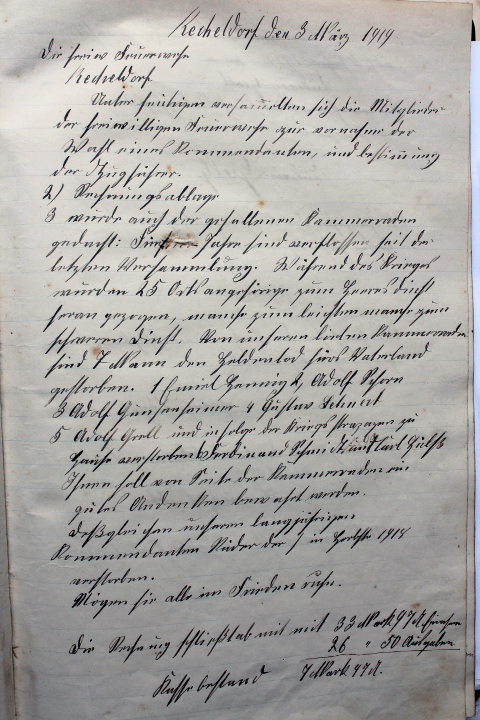 Recheldorf den 3 März 1919
Die freiw Feuerwehr
Recheldorf
Unter heutigen versammelten sich die Mitglieder
der freiwilligen Feuerwehr zur vornahme der
Wahl eines Kommandanten, und bestimmung
der Zugführer.
2) Rechnungsablage
3 wurde auch der gefallenen Kammerraden
gedacht: Fünf Jahre sind verflossen seit der
letzten Versammlung. Während des Krieges
wurden 25 Ortsangehörige zum Heeresdinst
heran gezogen, manche zum leichten manche zum
schweren Dinst. Von unseren lieben Kammeraden
sind 7 Mann den Heldentod fürs Vaterland
gestorben. 1 Emiel Hennig 2, Adolf Schorn
3 Adolf 4 Gustav Lehnert
5 Adolf Grell und infolge der Kriegsstrapazen zu
Hause verstorben Ferdinand Schmidt und Karl
Ihnen soll von Seite der Kammeraden ein
gutes Andenken bewahrt werden.
Deßgleichen unseren langjährigen
Kommandanten der / im Herbste 1918
verstorben.
Mögen sie alle im Frieden ruhn.
Die Rechnung schließt ab mit mit 33 Mark 97 d
26 " 50 Ausgaben
Kasse bestand 7 Mark 47 d.